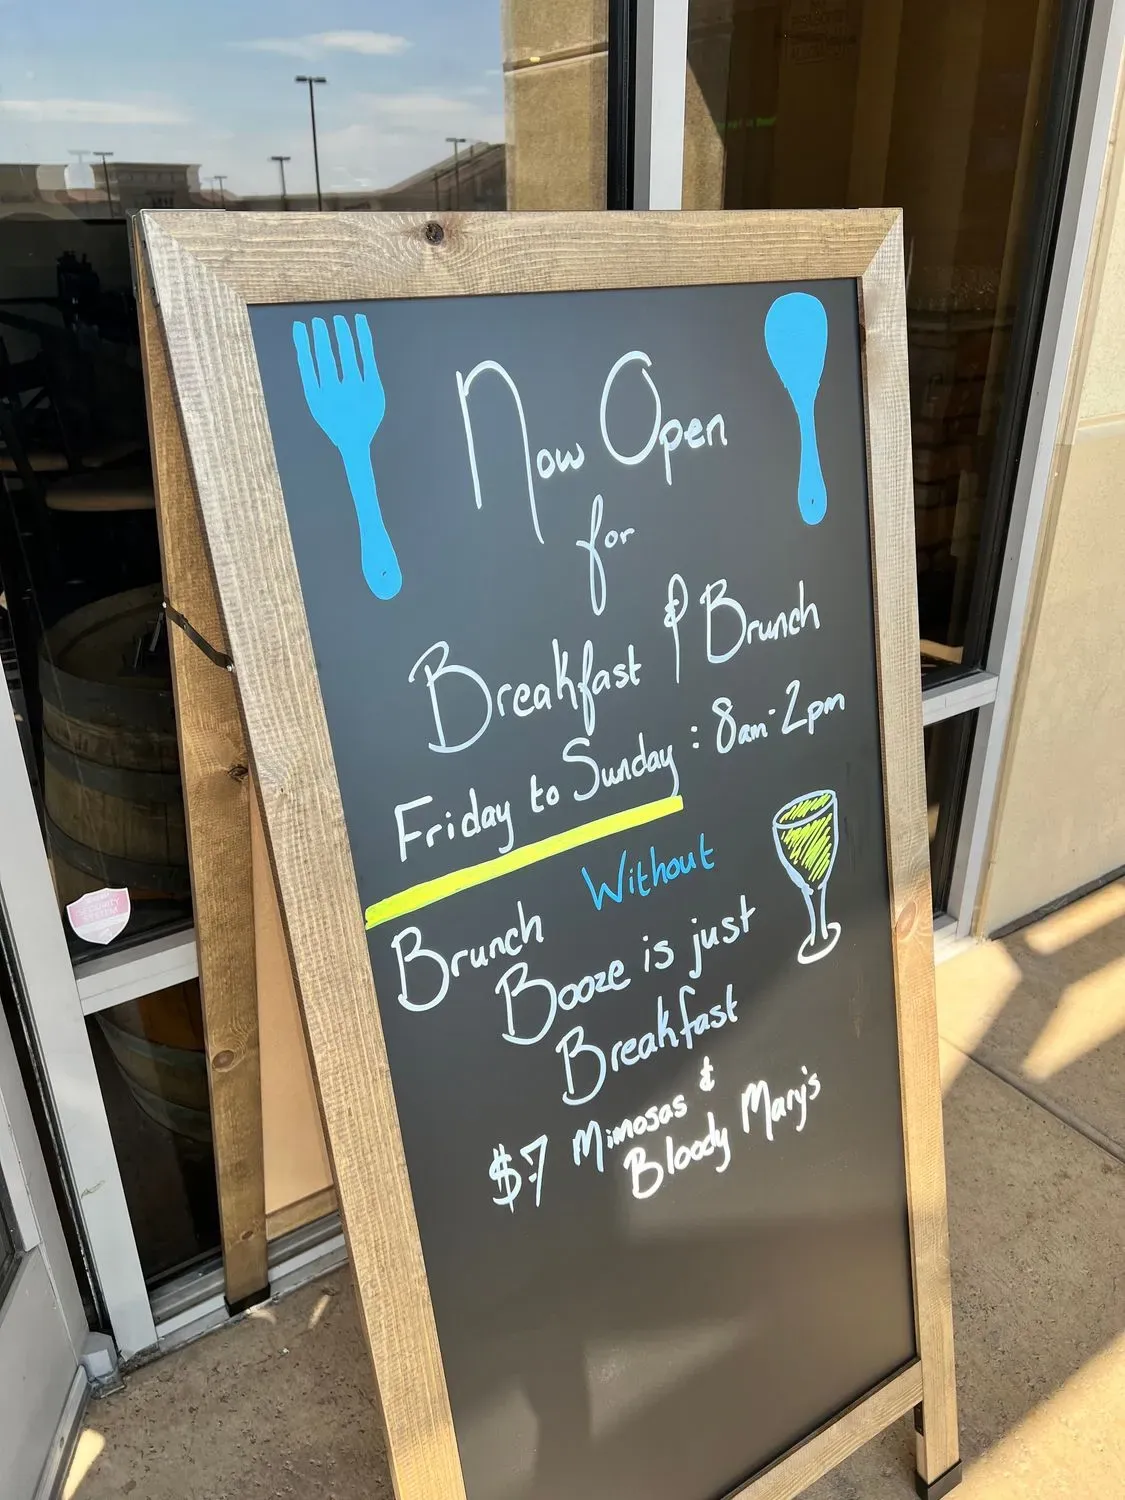 Now Open
for
Breakfast & Brunch
Friday to Sunday : 8am-2pm
Brunch Without
Booze is just
Breakfast
$7 Mimosas &
Bloody Mary's